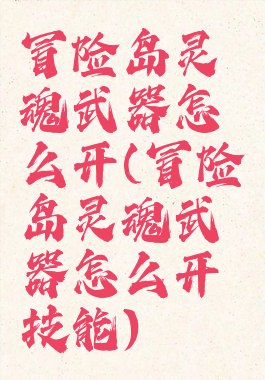 冒险岛灵
魂武器怎
么开(冒险
岛灵魂武
器怎么开
技能)